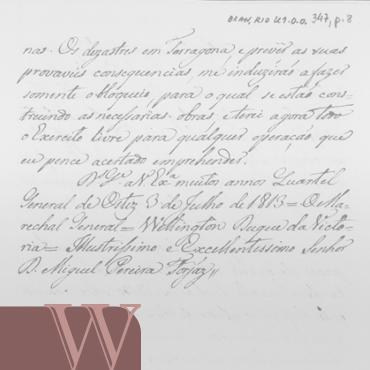 BRAN, RIO 49.0.0. 347, p. 8
nas. Os dezastres em Tarragona e prevêr as suas
provaveis consequencias, me induzírão a fazer
somente o bloqueio, para o qual se estão cons-
truindo as necessarias obras, e terei agora todo
o Exercito livre para qualquer operação que
eu pence acertado emprehender.
Ds. Ge. a V. Exa. muitos annos Quartel
General de Ostiz 3 de Julho de 1813 = O Ma-
rechal General = Wellington Duque da Victo-
ria = Illustrissimo e Excellentissimo Senhor
D. Miguel Pereira Forjaz //
W